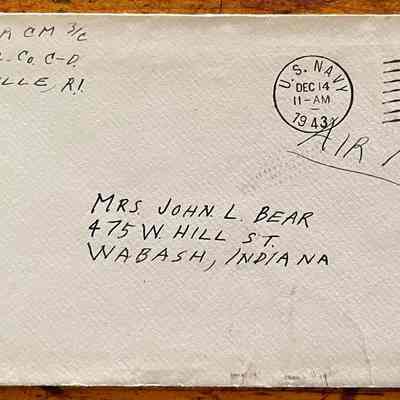 A CM 3/C
. Co. C-D.
ILLE, R.I.
U.S. NAVY
DEC 14
11-AM
1943
AIR
MRS. JOHN L. BEAR
475 W. HILL ST.
WABASH, INDIANA